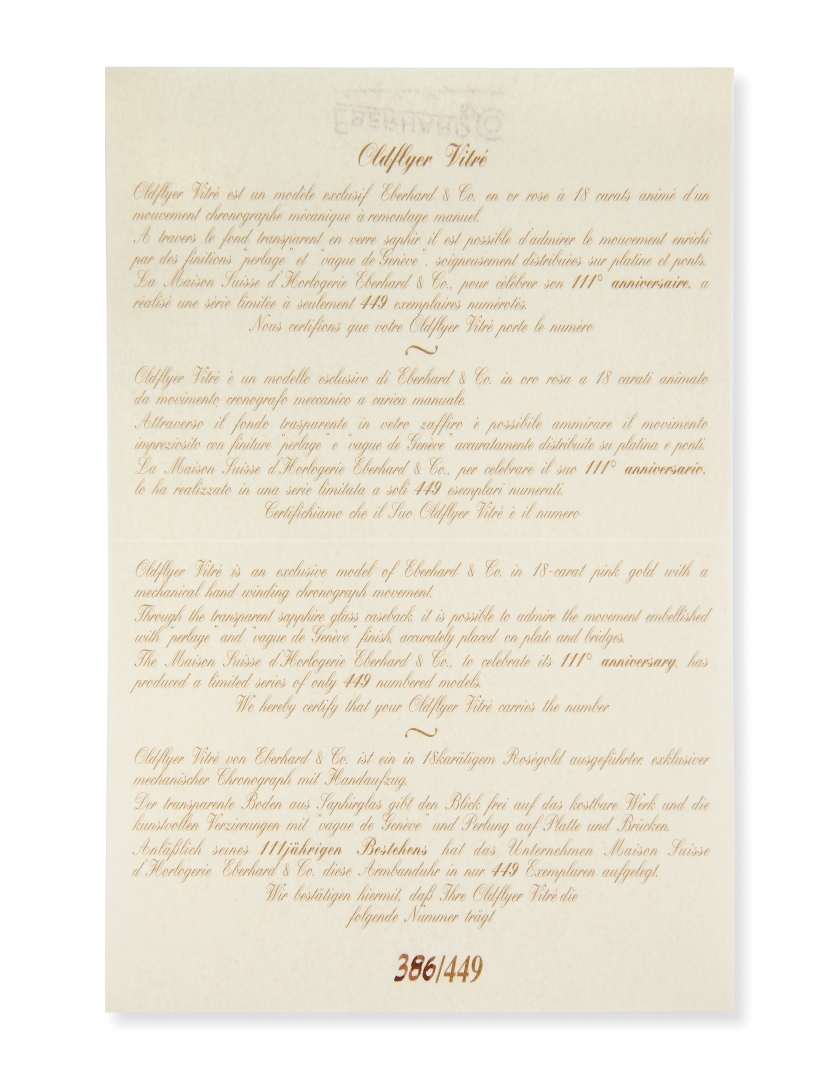 Oldflyer Vitré
Oldflyer Vitré est un modèle exclusif Eberhard & Co. en or rose à 18 carats animé d'un
mouvement chronographe mécanique à remontage manuel.
A travers le fond transparent en verre saphir il est possible d'admirer le mouvement enrichi
par des finitions "perlage" et "vague de Genève", soigneusement distribuées sur platine et ponts.
La Maison Suisse d'Horlogerie Eberhard & Co., pour célébrer son 111° anniversaire, a
réalisé une série limitée à seulement 449 exemplaires numérotés.
Nous certifions que votre Oldflyer Vitré porte le numéro
~
Oldflyer Vitré è un modello esclusivo di Eberhard & Co. in oro rosa a 18 carati animato
da movimento, cronografo meccanico a carica manuale.
Attraverso il fondo trasparente in vetro zaffiro è possibile ammirare il movimento
impreziosito con finiture "perlage" e "vague de Genève" accuratamente distribuite su platina e ponti.
La Maison Suisse d'Horlogerie Eberhard & Co., per celebrare il suo 111° anniversario,
lo ha realizzato in una serie limitata a soli 449 esemplari numerati.
Certifichiamo che il Suo Oldflyer Vitré è il numero
Oldflyer Vitré is an exclusive model of Eberhard & Co. in 18-carat pink gold with a
mechanical hand winding chronograph movement.
Through the transparent sapphire glass caseback, it is possible to admire the movement embellished
with "perlage" and "vague de Genève" finish, accurately placed on plate and bridges.
The Maison Suisse d'Horlogerie Eberhard & Co., to celebrate its 111° anniversary, has
produced a limited series of only 449 numbered models.
We hereby certify that your Oldflyer Vitré carries the number
~
Oldflyer Vitré von Eberhard & Co. ist ein in 18karätigem Roségold ausgeführter, exklusiver
mechanischer Chronograph mit Handaufzug.
Der transparente Boden aus Saphirglas gibt den Blick frei auf das kostbare Werk und die
kunstvollen Verzierungen mit "vague de Genève" und Perlung auf Platte und Brücken.
Anläßlich seines 111jährigen Bestehens hat das Unternehmen Maison Suisse
d'Horlogerie Eberhard & Co. diese Armbanduhr in nur 449 Exemplaren aufgelegt.
Wir bestätigen hiermit, daß Ihre Oldflyer Vitré die
folgende Nummer trägt
386/449